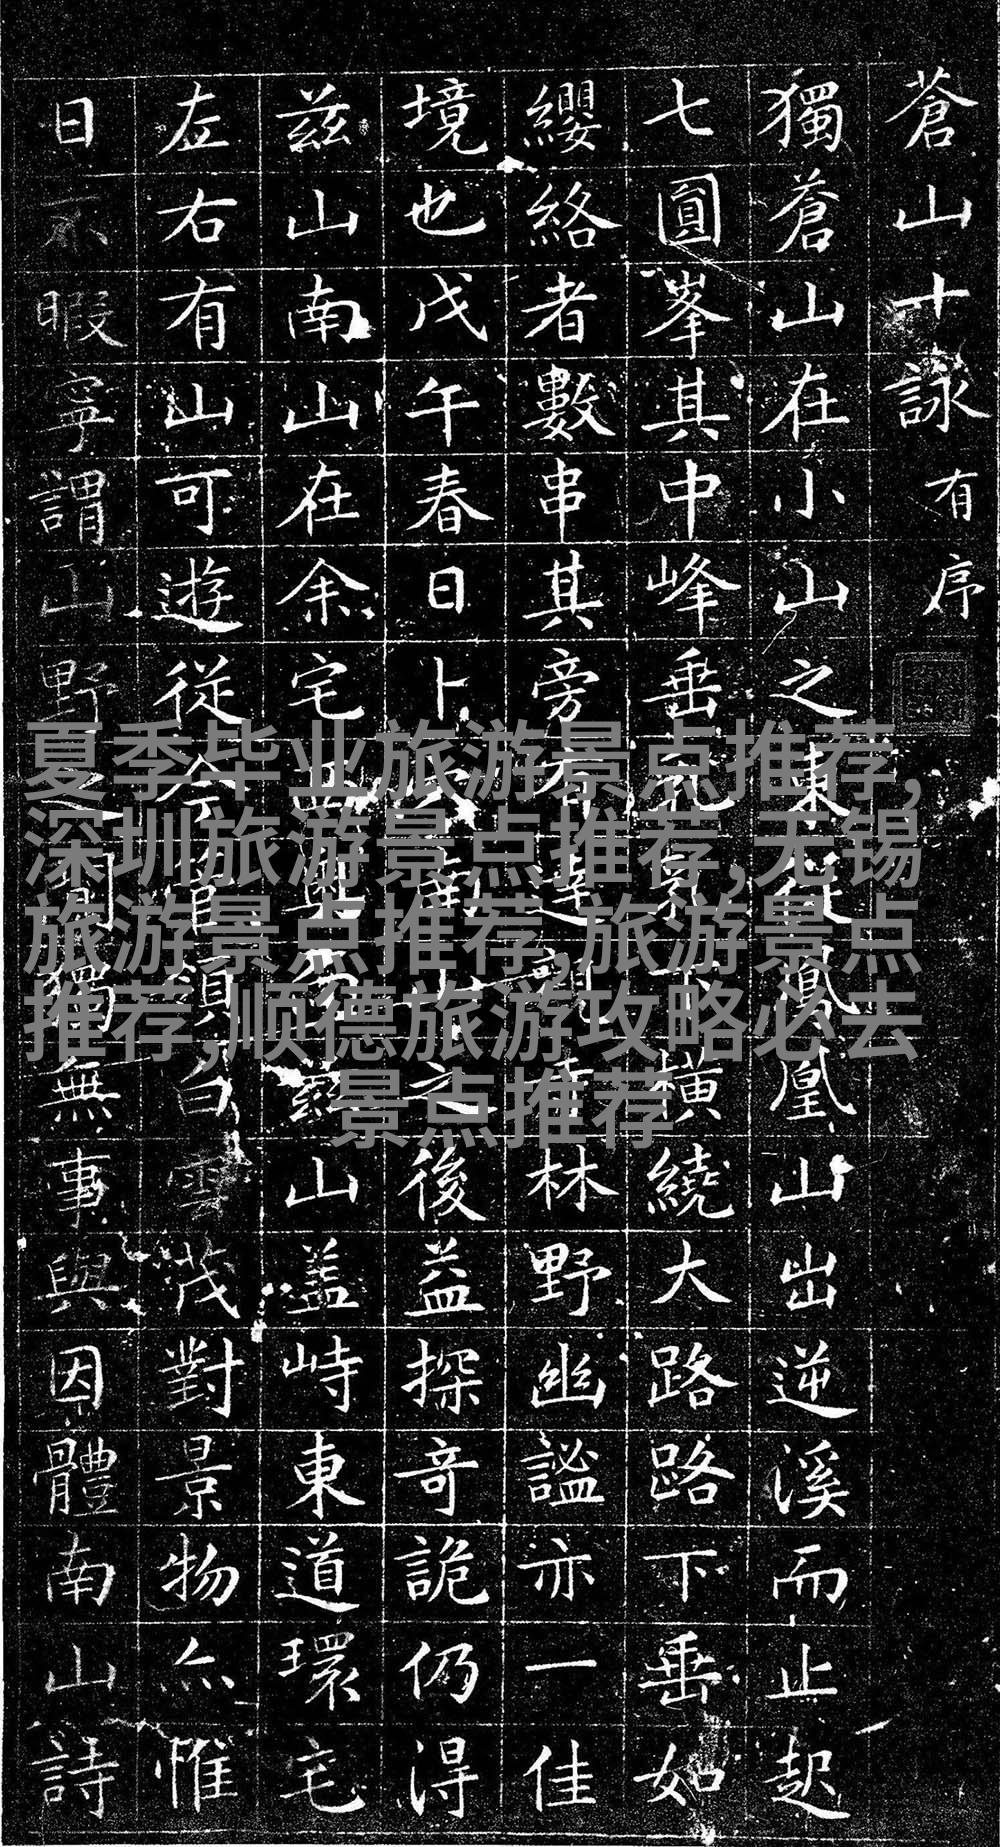 蒼山十詠 有序
獨蒼山在小山之東從鳳凰山出逆溪而止起
七圓峯其中峰垂橫繞大路路下垂如
纓絡者數串其旁有林野幽謐亦一佳
境也戊午春日卜山之後益探奇詭仍得
茲山南山在余宅山盖峙東道環宅
左右有山可遊從今管領白雲茂對景物亦惟
日不暇寧謂山野之閒獨無事與因體南山詩
夏季毕业旅游景点推荐,
深圳旅游景点推荐,无锡
旅游景点推荐,旅游景点
推荐,顺德旅游攻略必去
景点推荐